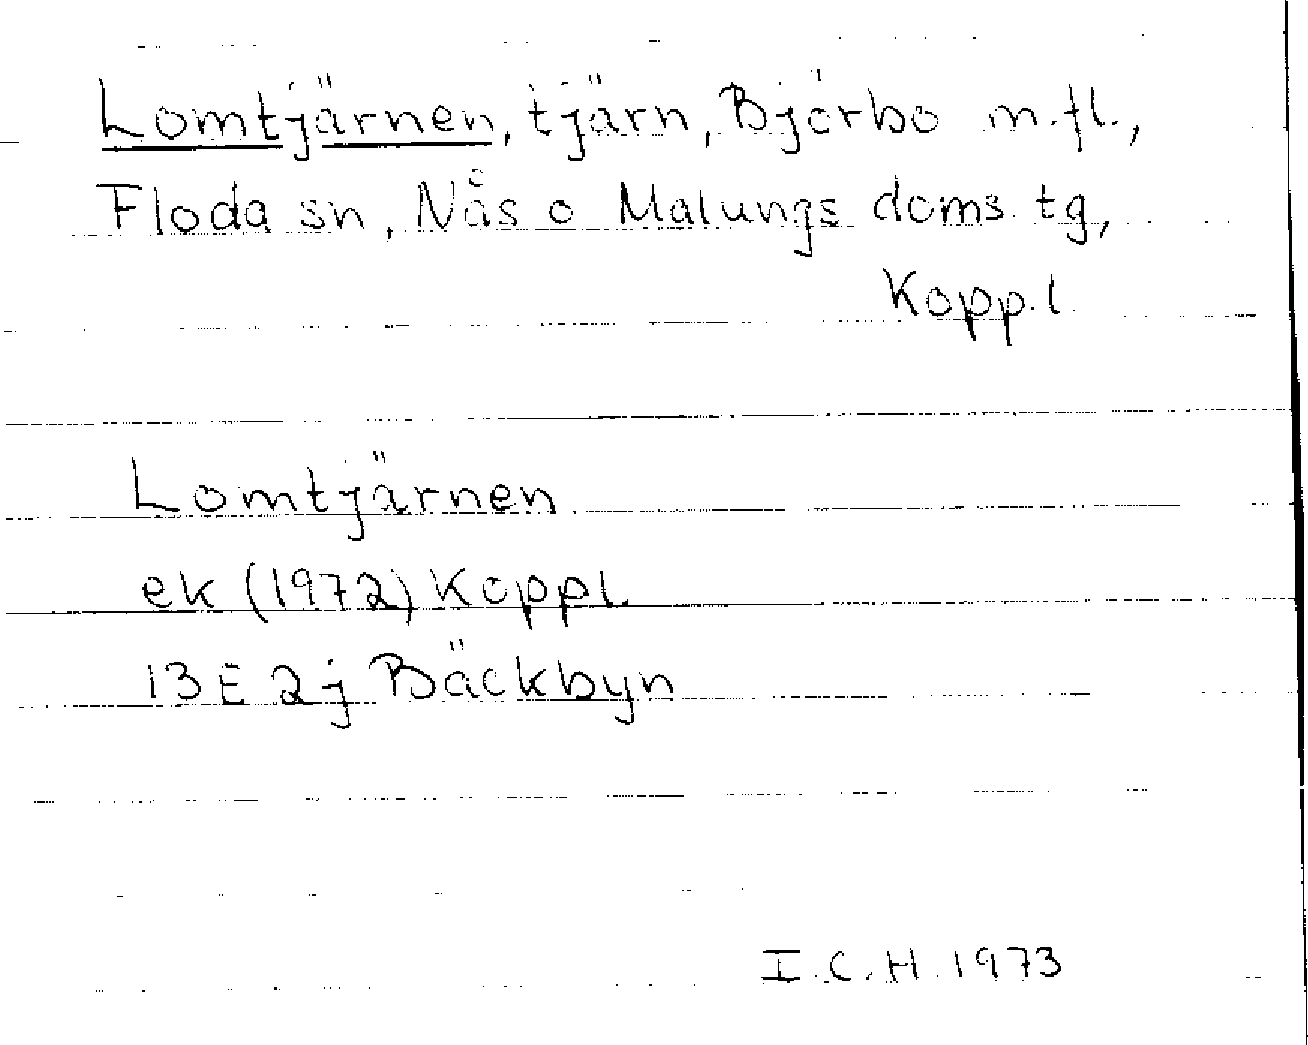 Lomtjärnen, tjärn, Björbo m.fl.,
Floda sn, Nås o Malungs doms. tg,
Kopp.l.
Lomtjärnen
ek (1972) Koppl.
13E 2j Bäckbyn
I.C.H. 1973